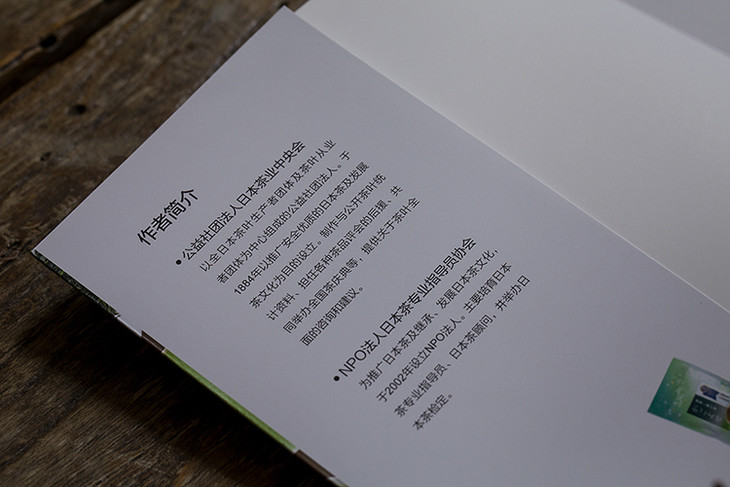 作者简介
●公益社团法人日本茶业中央会
以全日本茶叶生产者团体及茶叶从业
者团体为中心组成的公益社团法人。于
1884年以推广安全优质的日本茶及发展
茶文化为目的设立。制作与公开茶叶统
计资料、担任各种茶品评会的后援、共
同举办全国茶庆典等，提供关于茶叶全
面的咨询和建议。
●NPO法人日本茶专业指导员协会
为推广日本茶及继承、发展日本茶文化，
于2002年设立NPO法人。主要培育日本
茶专业指导员、日本茶顾问，并举办日
本茶检定。